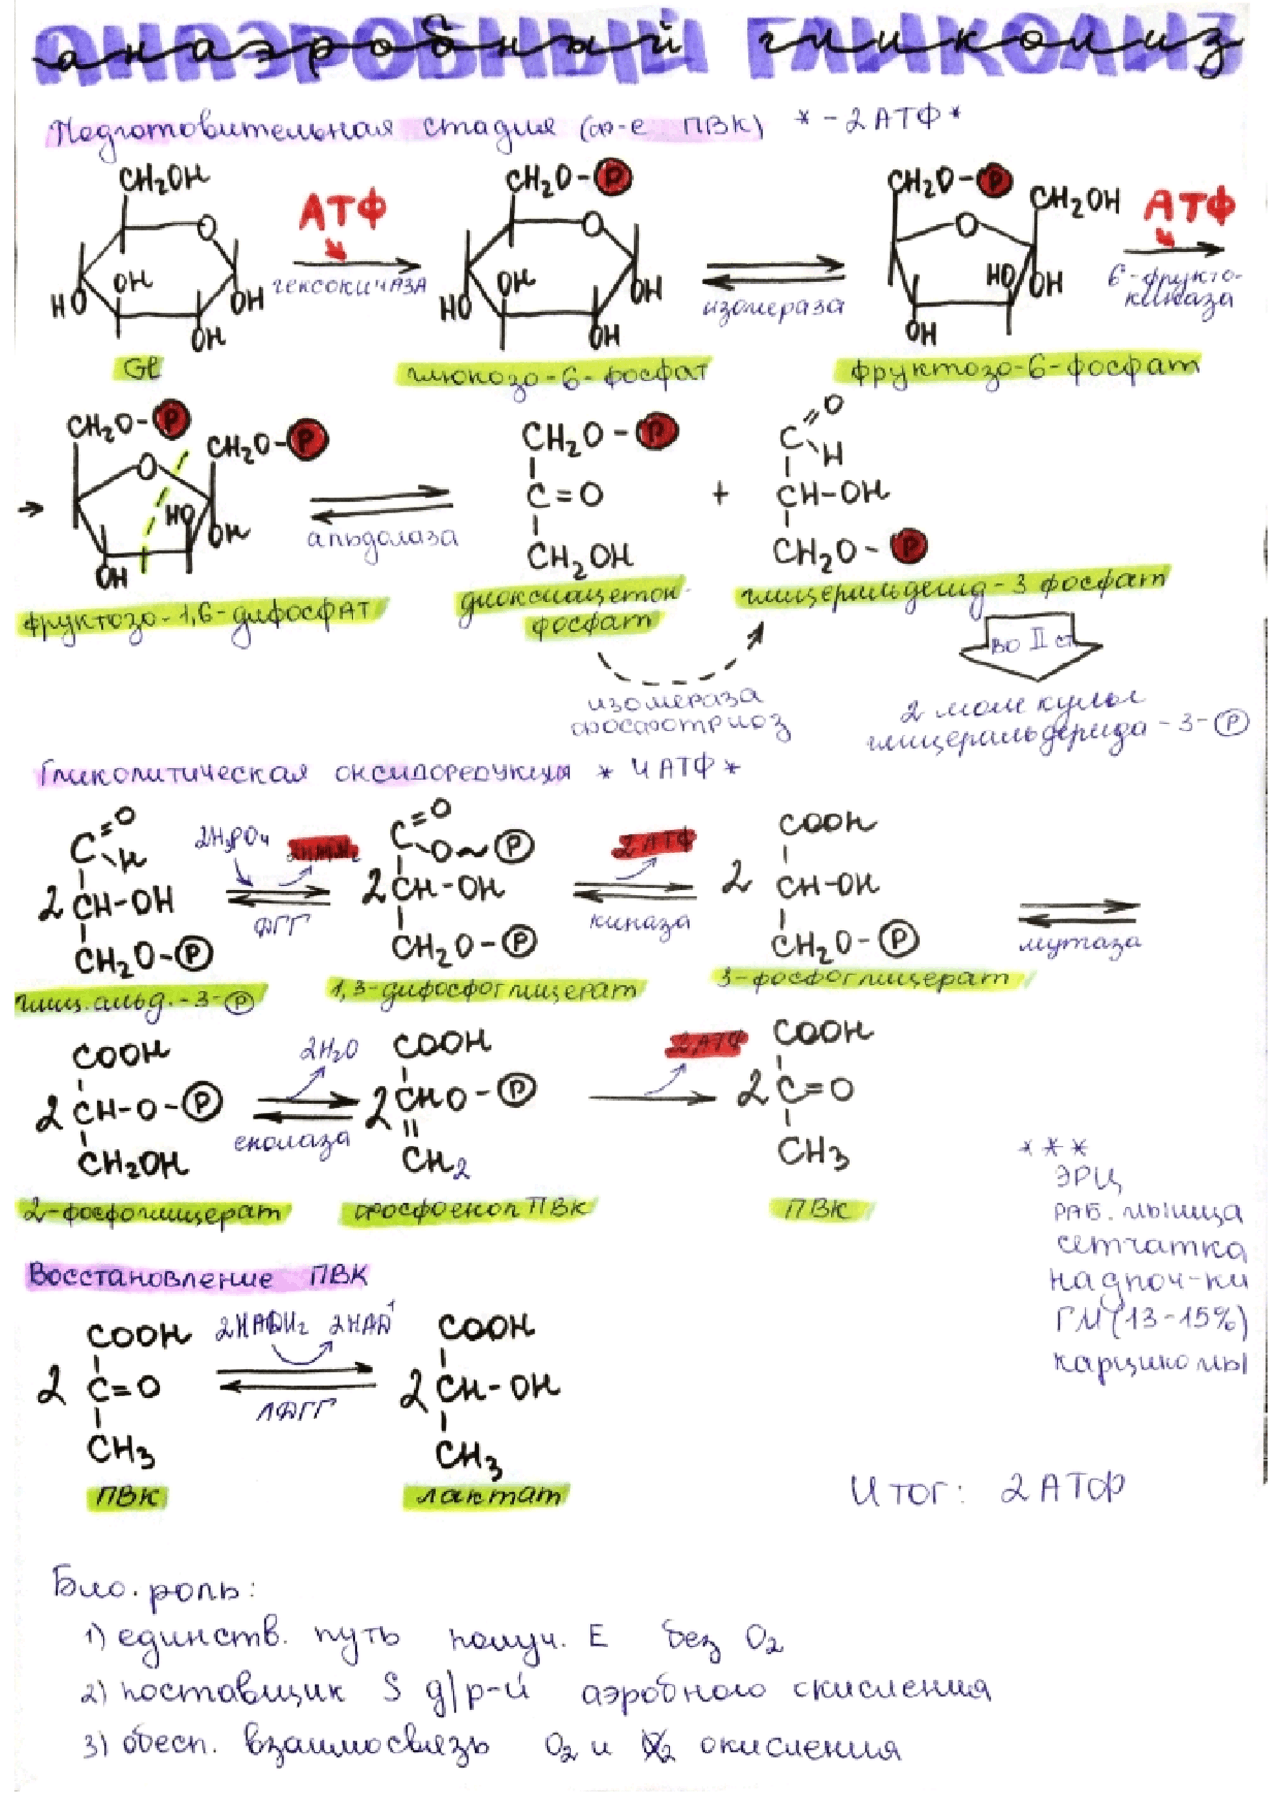 анаэробный гликолиз
Подготовительная стадия (ор-е ПВК) * -2 АТФ *
CH₂OH
O
OH
HO
OH
OH
Gl
АТФ
гексокиназа
CH₂O-P
O
OH
HO
OH
OH
глюкозо-6-фосфат
изомераза
CH₂O-P
CH₂OH
O
HO
OH
OH
фруктозо-6-фосфат
АТФ
6-фрукто-
киназа
CH₂O-P
CH₂O-P
O
HO
OH
OH
фруктозо-1,6-дифосфат
альдолаза
CH₂O-P
C=O
CH₂OH
диоксиацетон-
фосфат
+
C=O
H
CH-OH
CH₂O-P
глицеральдегид-3 фосфат
изомераза
фосфотриоз
во II ст
2 молекулы
глицеральдегида-3-P
Гликолитическая оксидоредукция * 4 АТФ *
C=O
H
2 CH-OH
CH₂O-P
глиц.альд.-3-P
2H₃PO₄
ДГГ
C=O
O~P
2 CH-OH
CH₂O-P
1,3-дифосфоглицерат
2 АТФ
киназа
COOH
2 CH-OH
CH₂O-P
3-фосфоглицерат
мутаза
COOH
2 CH-O-P
CH₂OH
2-фосфоглицерат
2H₂O
енолаза
COOH
2 CHO-P
CH₂
фосфоенол ПВК
2 АТФ
COOH
2 C=O
CH₃
ПВК
* * *
ЭРЦ
РАБ. мышца
сетчатка
надпоч-ки
ГМ (13-15%)
карциномы
Восстановление ПВК
COOH
2 C=O
CH₃
ПВК
2НАДН₂ 2НАД⁺
ЛДГГ
COOH
2 CH-OH
CH₃
лактат
Итог: 2 АТФ
Био. роль:
1) единств. путь получ. E без O₂
2) поставщик S д/р-й аэробного окисления
3) обесп. взаимосвязь O₂ и окисления